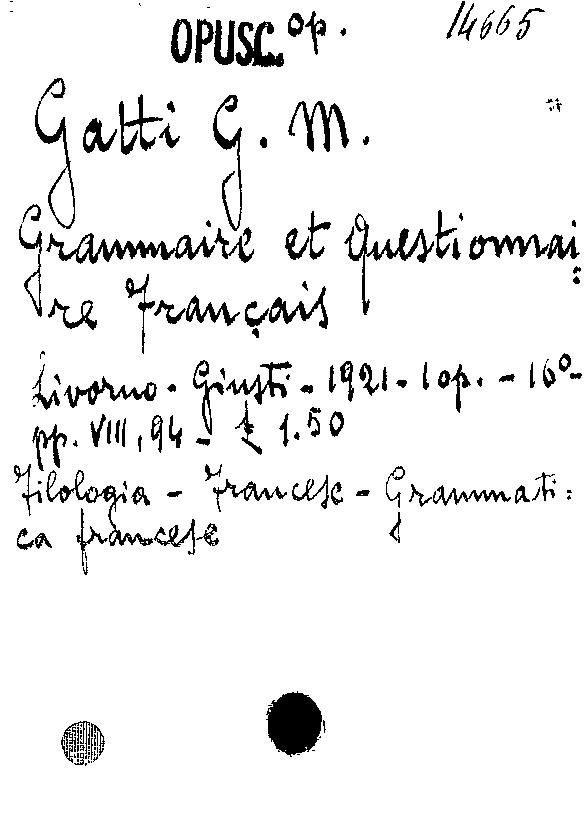 OPUSC. op. 14665
Gatti G. M.
Grammaire et Questionnai
re Français
Livorno - Giusti - 1921 - 1 op. - 16º -
pp. VIII, 94 - £ 1.50
Filologia - Francese - Grammati:
ca francese